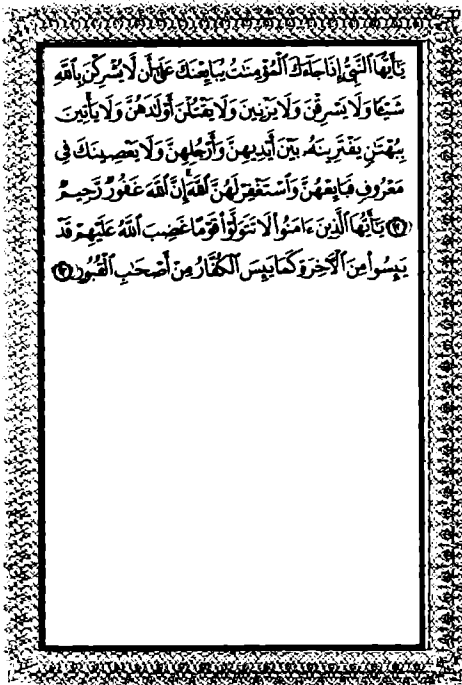 يَٰٓأَيُّهَا ٱلنَّبِىُّ إِذَا جَآءَكَ ٱلْمُؤْمِنَٰتُ يُبَايِعْنَكَ عَلَىٰٓ أَن لَّا يُشْرِكْنَ بِٱللَّهِ
شَيْـًٔا وَلَا يَسْرِقْنَ وَلَا يَزْنِينَ وَلَا يَقْتُلْنَ أَوْلَٰدَهُنَّ وَلَا يَأْتِينَ
بِبُهْتَٰنٍ يَفْتَرِينَهُۥ بَيْنَ أَيْدِيهِنَّ وَأَرْجُلِهِنَّ وَلَا يَعْصِينَكَ فِى
مَعْرُوفٍ فَبَايِعْهُنَّ وَٱسْتَغْفِرْ لَهُنَّ ٱللَّهَ إِنَّ ٱللَّهَ غَفُورٌ رَّحِيمٌ
يَٰٓأَيُّهَا ٱلَّذِينَ ءَامَنُوا۟ لَا تَتَوَلَّوْا۟ قَوْمًا غَضِبَ ٱللَّهُ عَلَيْهِمْ قَدْ
يَئِسُوا۟ مِنَ ٱلْءَاخِرَةِ كَمَا يَئِسَ ٱلْكُفَّارُ مِنْ أَصْحَٰبِ ٱلْقُبُورِ